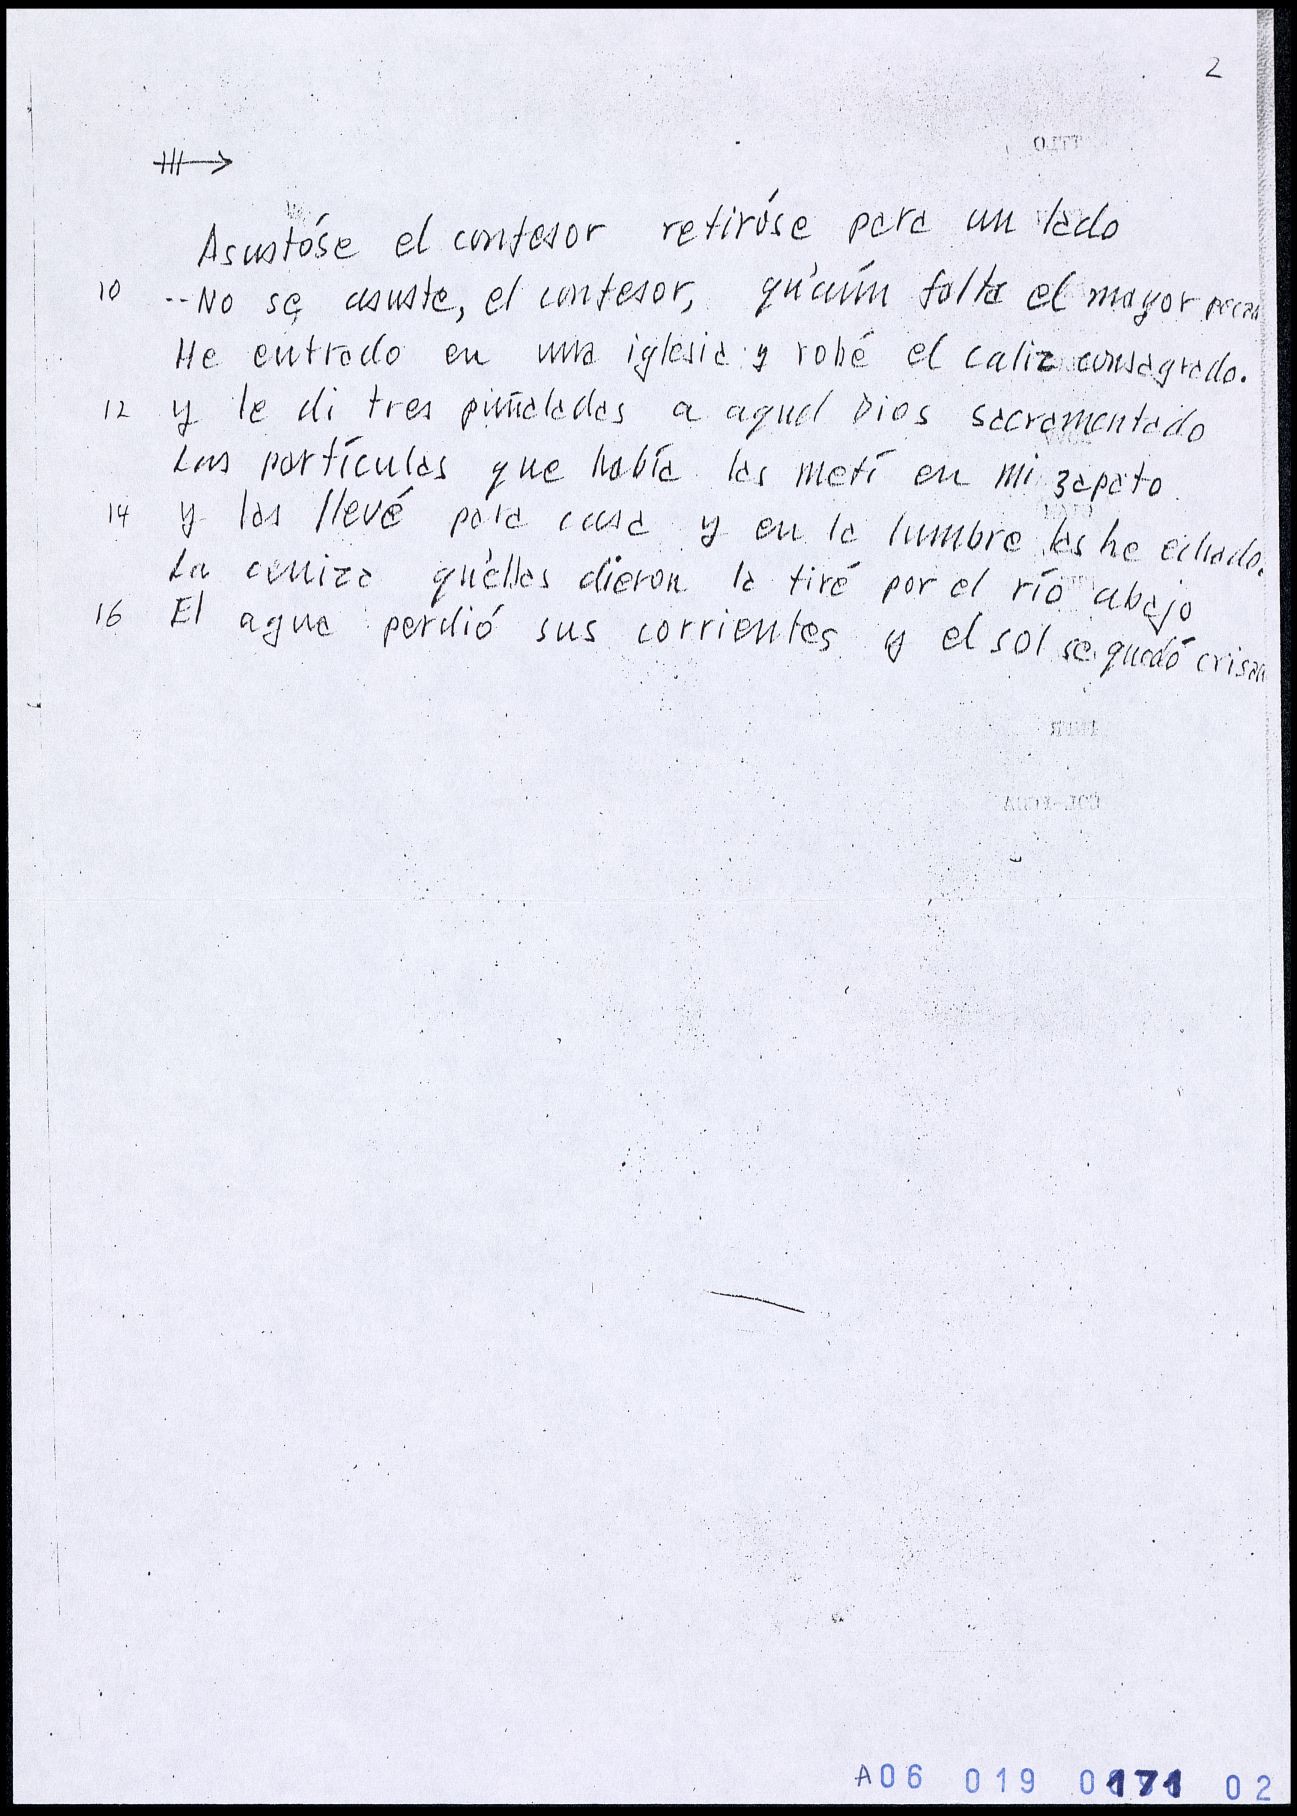 2
Asustóse el confesor retiróse para un lado
10 --No se asuste, el confesor, qu'aún falta el mayor pecau
He entrado en una iglesia y robé el caliz consagrado.
12 y le di tres puñaladas a aquel Dios sacramentado
Las partículas que había las metí en mi zapato
14 y las llevé para casa y en la lumbre las he echado.
La ceniza qu'ellas dieron la tiré por el río abajo
16 El agua perdió sus corrientes y el sol se quedó crisau
A06 019 0171 02